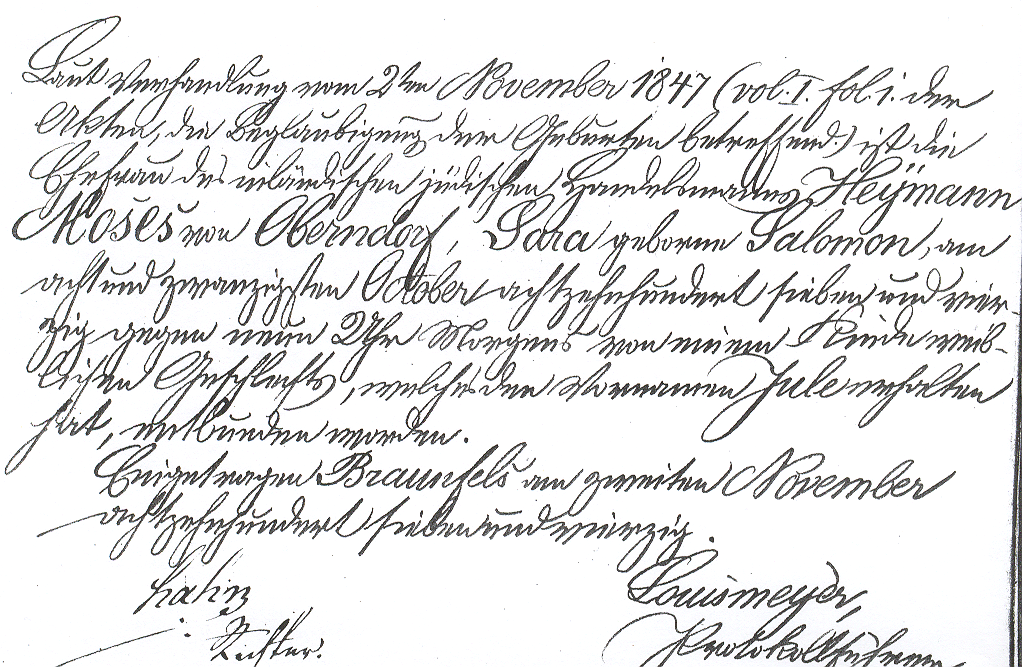 Laut Verhandlung vom 2ten November 1847 (vol. I. fol. 1. der
Akten, die Beglaubigung der Geburten betreffend.) ist die
Ehefrau des inländischen jüdischen Handelsmanns Heÿmann
Moses von Oberndorf, Sara geborne Salomon, am
achtundzwanzigsten October achtzehnhundert sieben und vier-
zig gegen neun Uhr Morgens von einem Kinde weib-
lichen Geschlechts, welches den Vornamen Jule erhalten
hat, entbunden worden.
Eingetragen Braunfels am zweiten November
achtzehnhundert sieben und vierzig.
Louismeyer,
Richter. Protokollführer